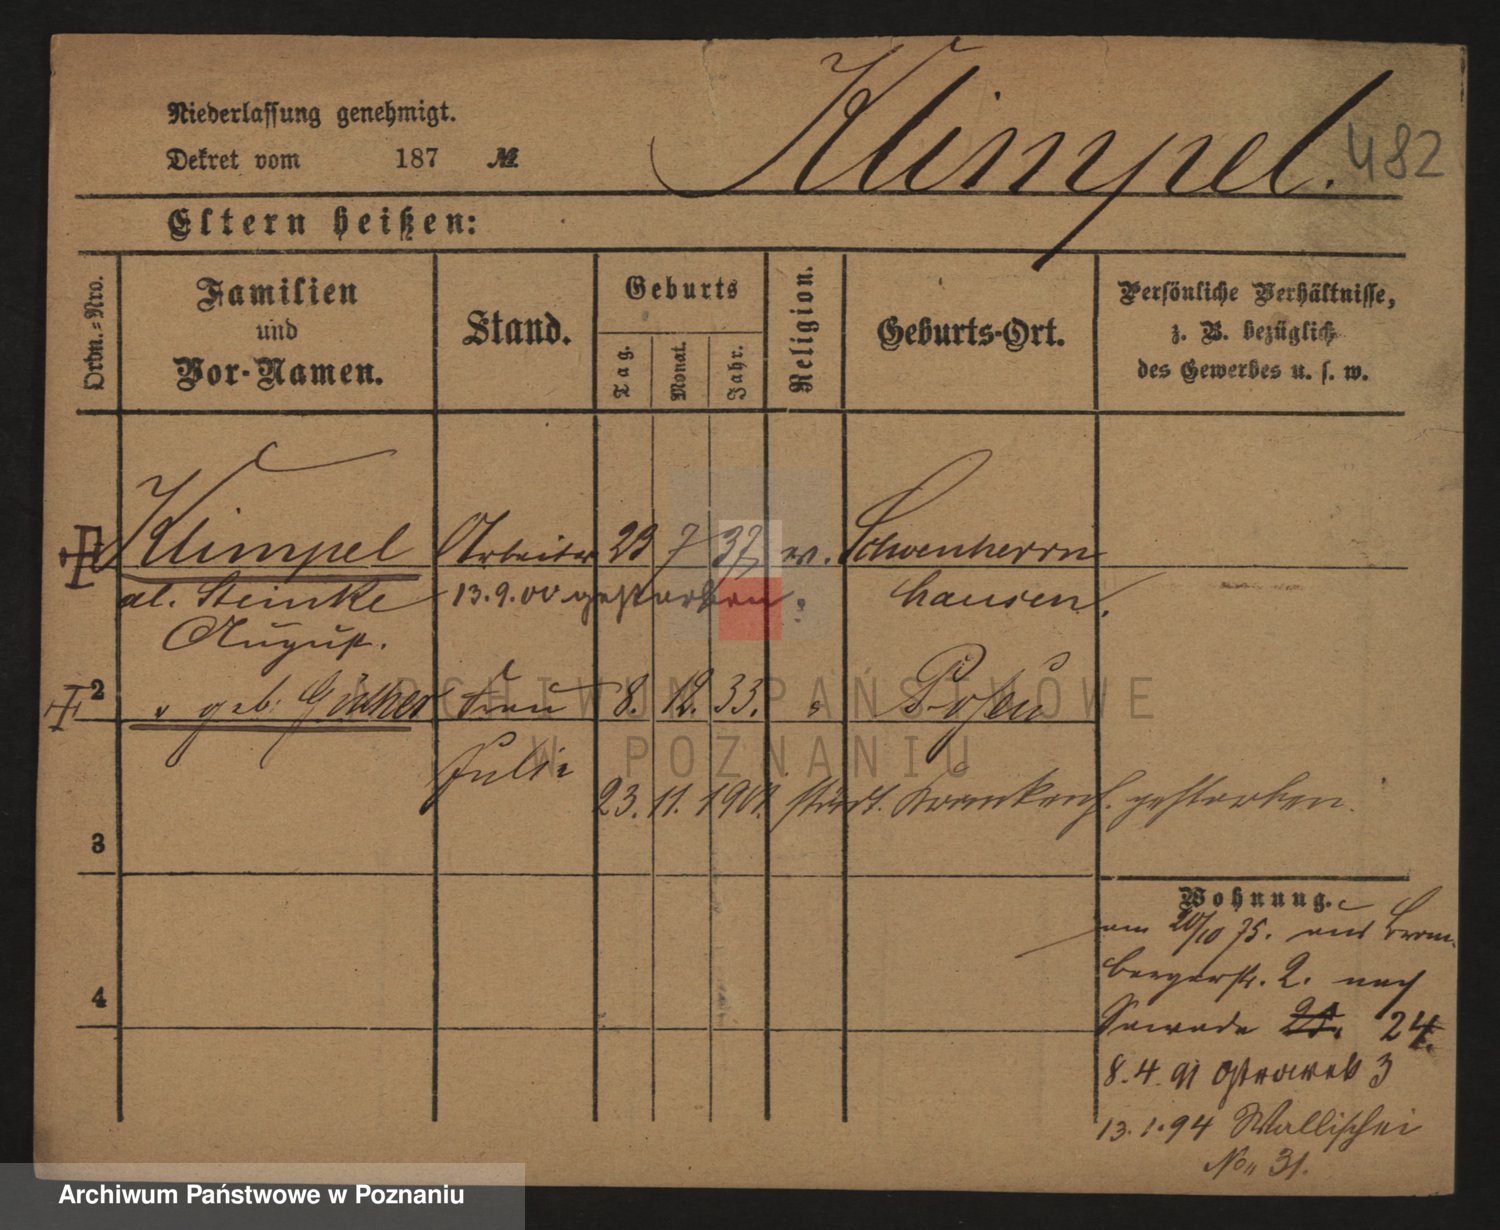 Niederlassung genehmigt.
Dekret vom 187 №
Klimpel. 482
Eltern heißen:
Ordn.-Nro.
Familien
und
Vor-Namen.
Stand.
Geburts
Tag.
Monat.
Jahr.
Religion.
Geburts-Ort.
Persönliche Verhältnisse,
z. B. bezüglich
des Gewerbes u. s. w.
Klimpel Arbeiter 23 7 37 ev. Schoenherrn
al. Steinke 13.9.00 gestorben. hausen.
August.
2 geb. Frau 8. 12. 33. Posen
Julie
23. 11. 1901. städt. Krankenh. gestorben.
3
Wohnung.
am 20/10 75. aus Brom-
bergerstr. 2. nach
Zawade 24.
8.4.91 Ostrowek 3
4
13.1.94 Wallischei
No 31.
ARCHIWUM PAŃSTWOWE
W POZNANIU
Archiwum Państwowe w Poznaniu